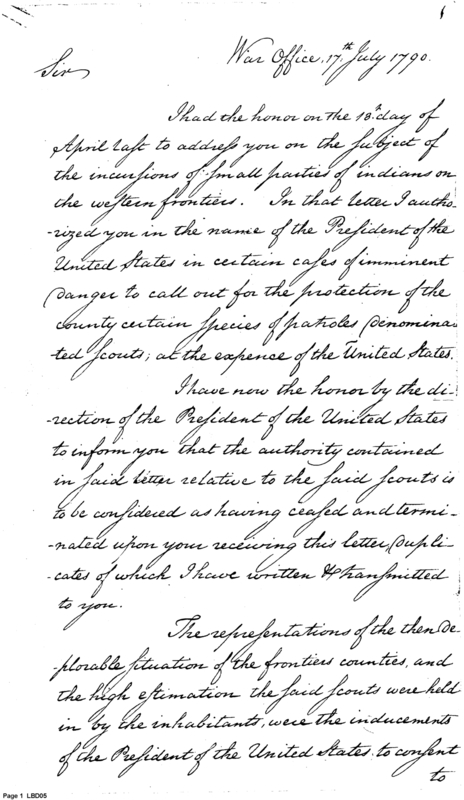 War Office, 17th July 1790.
Sir
I had the honor on the 13th day of
April last to address you on the subject of
the incursions of small parties of indians on
the western frontiers. In that letter I autho-
-rized you in the name of the President of the
United States in certain cases of imminent
danger to call out for the protection of the
county certain species of patroles denomina
ted scouts; at the expence of the United States.
I have now the honor by the di-
-rection of the President of the United States
to inform you that the authority contained
in said letter relative to the said scouts is
to be considered as having ceased and termi-
-nated upon your receiving this letter, dupli-
-cates of which I have written & transmitted
to you.
The representations of the then de-
-plorable situation of the frontiers counties, and
the high estimation the said scouts were held
in by the inhabitants, were the inducements
of the President of the United States to consent
to
Page 1 LBD05